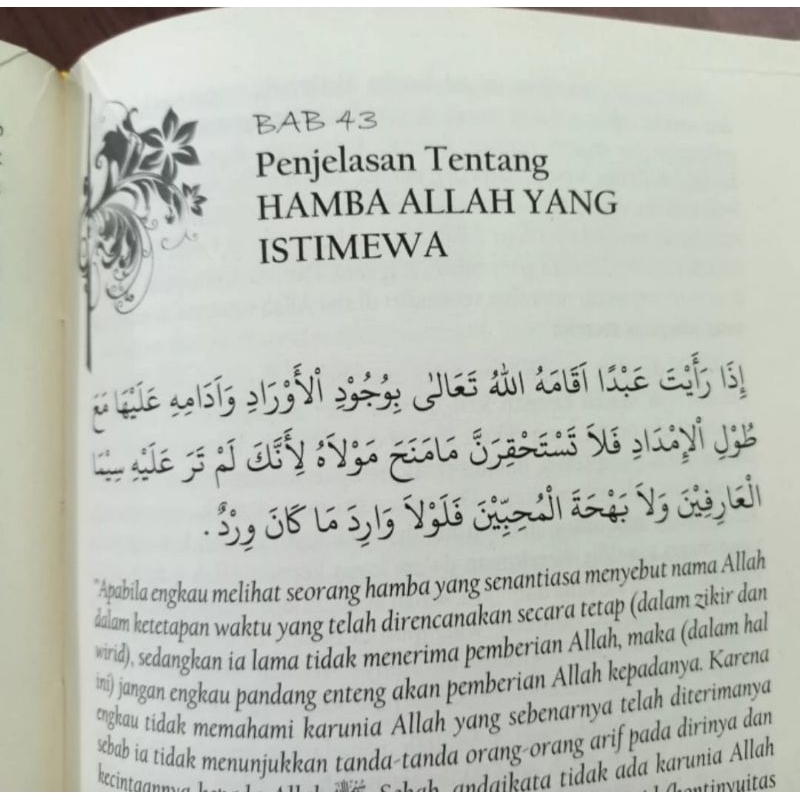 BAB 43
Penjelasan Tentang
HAMBA ALLAH YANG
ISTIMEWA
إِذَا رَأَيْتَ عَبْدًا اَقَامَهُ اللهُ تَعَالٰى بِوُجُوْدِ اْلأَوْرَادِ وَاَدَامِهِ عَلَيْهَا مَعَ
طُوْلِ اْلإِمْدَادِ فَلاَ تَسْتَحْقِرَنَّ مَامَنَحَ مَوْلاَهُ لِأَنَّكَ لَمْ تَرَ عَلَيْهِ سِيْمَا
الْعَارِفِيْنَ وَلاَ بَهْحَةَ الْمُحِبِّيْنَ فَلَوْلاَ وَارِدَ مَا كَانَ وِرْدٌ .
"Apabila engkau melihat seorang hamba yang senantiasa menyebut nama Allah
dalam ketetapan waktu yang telah direncanakan secara tetap (dalam zikir dan
wirid), sedangkan ia lama tidak menerima pemberian Allah, maka (dalam hal
ini) jangan engkau pandang enteng akan pemberian Allah kepadanya. Karena
engkau tidak memahami karunia Allah yang sebenarnya telah diterimanya
sebab ia tidak menunjukkan tanda-tanda orang-orang arif pada dirinya dan
kecintaannya kepada Allah ﷻ. Sebab, andaikata tidak ada karunia Allah
(kontinyuitas